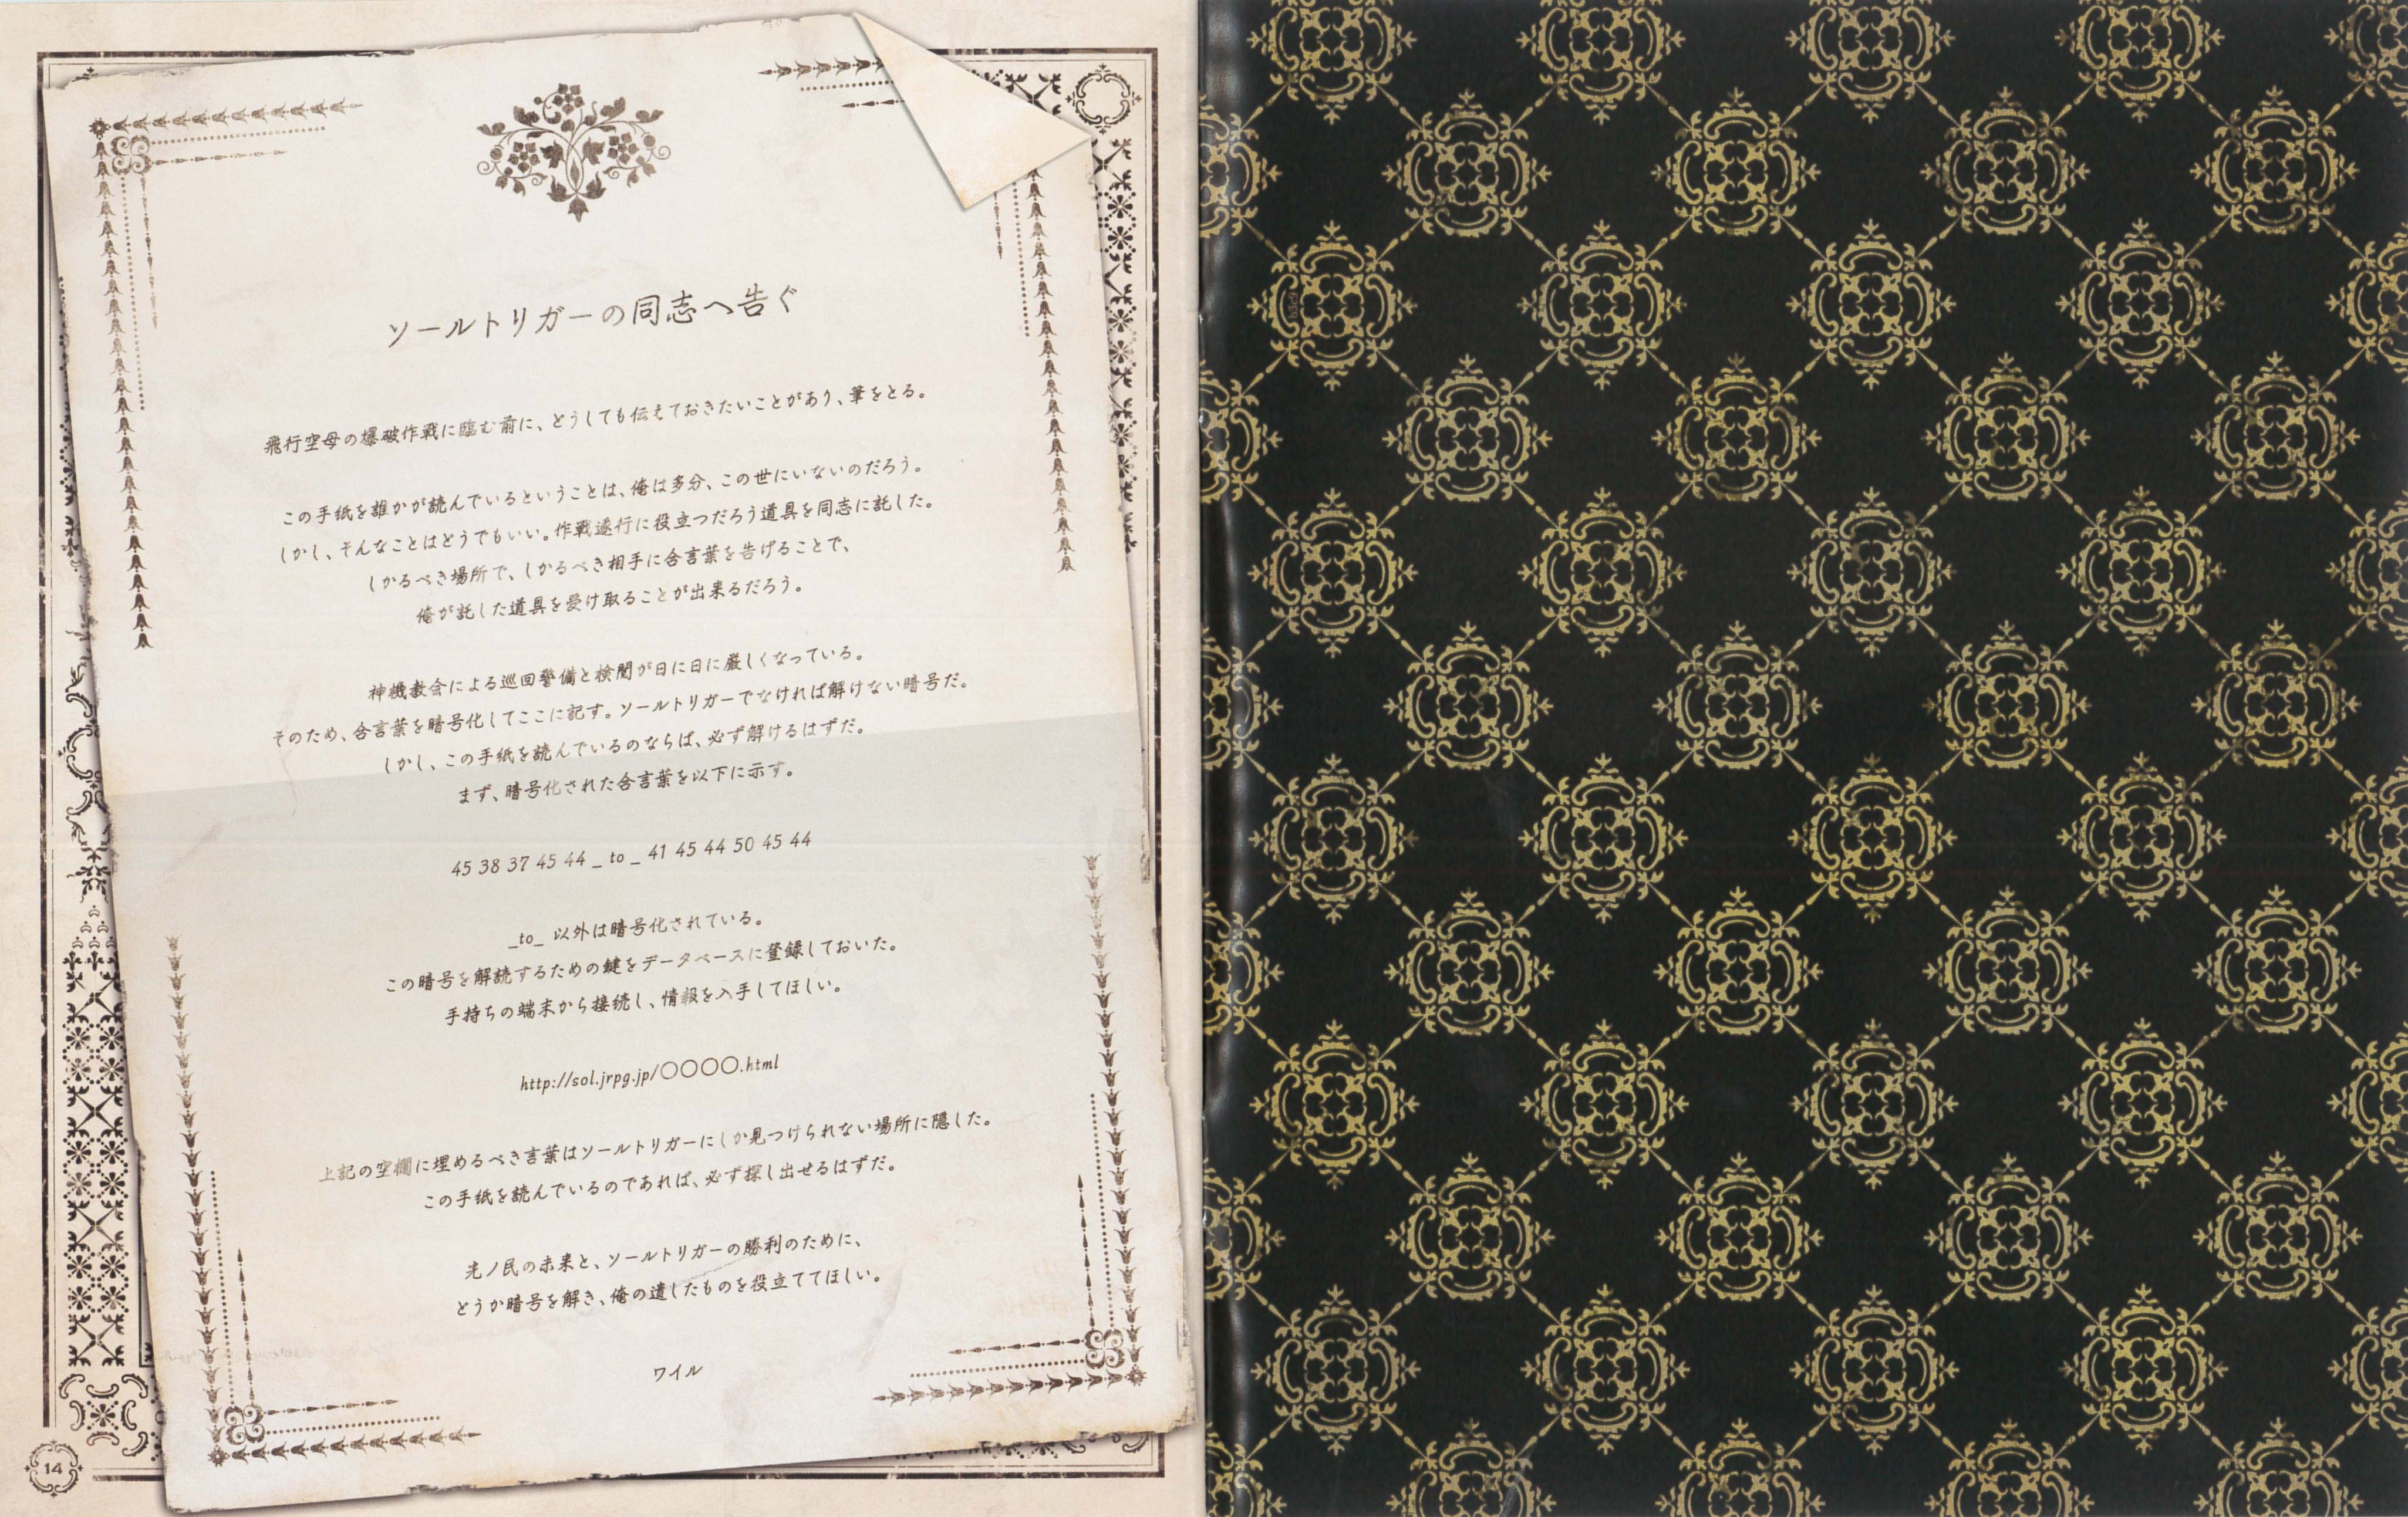 ソールトリガーの同志へ告ぐ
飛行空母の爆破作戦に臨む前に、どうしても伝えておきたいことがあり、筆をとる。
この手紙を誰かが読んでいるということは、俺は多分、この世にいないのだろう。
しかし、そんなことはどうでもいい。作戦遂行に役立つだろう道具を同志に託した。
しかるべき場所で、しかるべき相手に合言葉を告げることで、
俺が託した道具を受け取ることが出来るだろう。
神機教会による巡回警備と検閲が日に日に厳しくなっている。
そのため、合言葉を暗号化してここに記す。ソールトリガーでなければ解けない暗号だ。
しかし、この手紙を読んでいるのならば、必ず解けるはずだ。
まず、暗号化された合言葉を以下に示す。
45 38 37 45 44 _ to _ 41 45 44 50 45 44
_to_ 以外は暗号化されている。
この暗号を解読するための鍵をデータベースに登録しておいた。
手持ちの端末から接続し、情報を入手してほしい。
http://sol.jrpg.jp/〇〇〇〇.html
上記の空欄に埋めるべき言葉はソールトリガーにしか見つけられない場所に隠した。
この手紙を読んでいるのであれば、必ず探し出せるはずだ。
光ノ民の未来と、ソールトリガーの勝利のために、
どうか暗号を解き、俺の遺したものを役立ててほしい。
ワイル
14